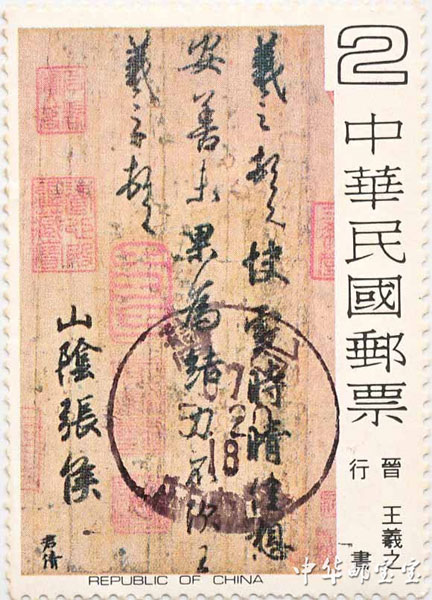 2
中華民國郵票
晉 王羲之
行書
羲之頓首快雪時晴佳想
安善未果為結力不次王
羲之頓首
山陰張侯
君倩
18
REPUBLIC OF CHINA
中华邮宝宝